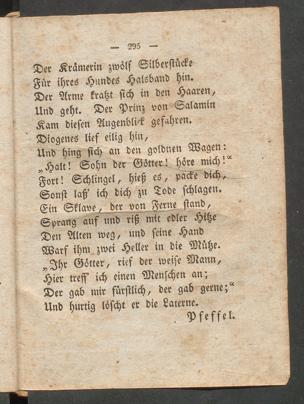 — 295 —
Der Krämerin zwölf Silberstücke
Für ihres Hundes Halsband hin.
Der Arme kratzt sich in den Haaren,
Und geht. Der Prinz von Salamin
Kam diesen Augenblick gefahren.
Diogenes lief eilig hin,
Und hing sich an den goldnen Wagen:
„Halt! Sohn der Götter! höre mich!“
Fort! Schlingel, hieß es, packe dich,
Sonst laß' ich dich zu Tode schlagen.
Ein Sklave, der von Ferne stand,
Sprang auf und riß mit edler Hitze
Den Alten weg, und seine Hand
Warf ihm zwei Heller in die Mütze.
„Ihr Götter, rief der weise Mann,
Hier treff' ich einen Menschen an;
Der gab mir fürstlich, der gab gerne;“
Und hurtig löscht er die Laterne.
Pfeffel.